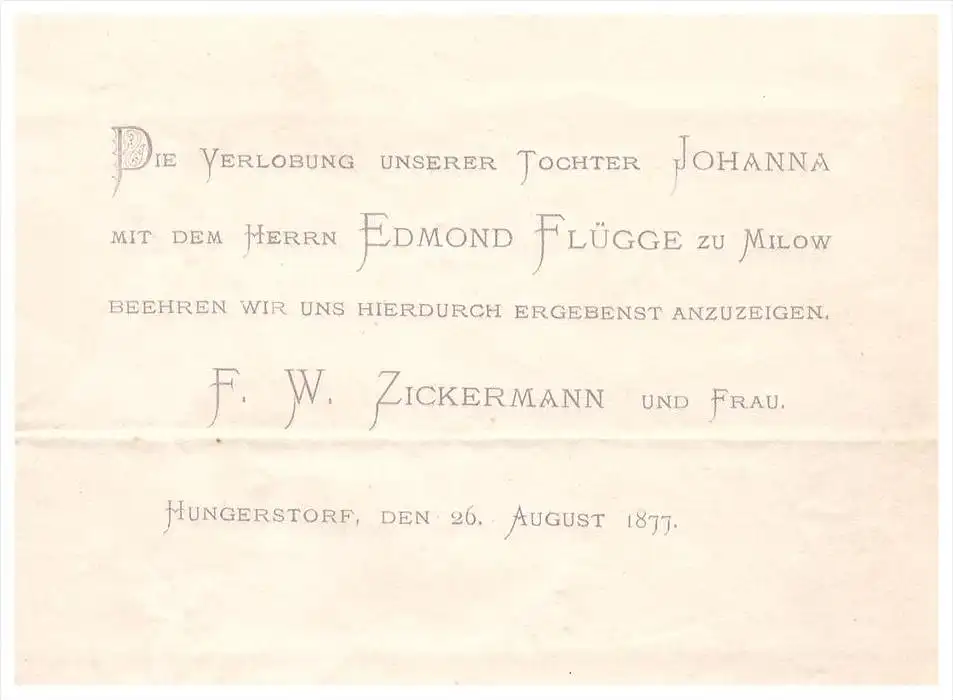 Die Verlobung unserer Tochter Johanna
mit dem Herrn Edmond Flügge zu Milow
beehren wir uns hierdurch ergebenst anzuzeigen.
F. W. Zickermann und Frau.
Hungerstorf, den 26. August 1877.